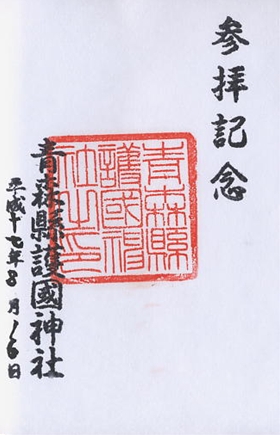 参拝記念
青森縣護國神社之印
青森縣護國神社
平成十七年 月 日